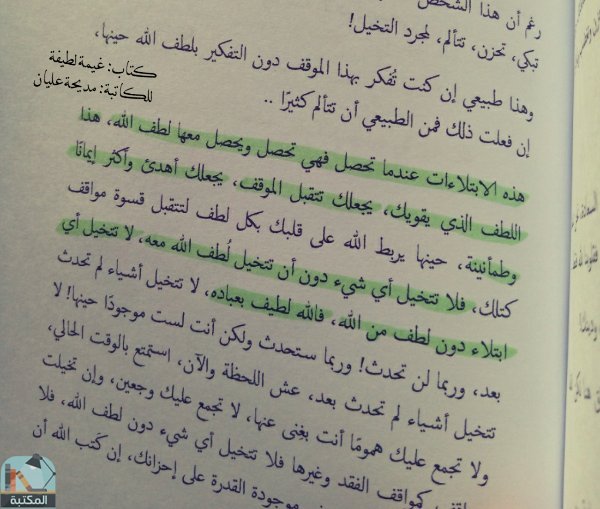 رغم أن هذا الشخص
تبكي، تحزن، تتألم، لمجرد التخيل!
وهذا طبيعي إن كنت تُفكر بهذا الموقف دون التفكير بلطف الله حينها،
إن فعلت ذلك فمن الطبيعي أن تتألم كثيرًا ..
كتاب: غيمة لطيفة
للكاتبة: مديحة عليان
هذه الابتلاءات عندما تحصل فهي تحصل ويحصل معها لطف الله، هذا
اللطف الذي يقويك، يجعلك تتقبل الموقف، يجعلك أهدئ وأكثر إيمانًا
وطمأنينة، حينها يربط الله على قلبك بكل لطف لتتقبل قسوة مواقف
كتلك، فلا تتخيل أي شيء دون أن تتخيل لُطف الله معه، لا تتخيل أي
ابتلاء دون لطف من الله، فالله لطيف بعباده، لا تتخيل أشياء لم تحدث
بعد، وربما لن تحدث! وربما ستحدث ولكن أنت لست موجودًا حينها! لا
تتخيل أشياء لم تحدث بعد، عش اللحظة والآن، استمتع بالوقت الحالي،
ولا تجمع عليك همومًا أنت بغنى عنها، لا تجمع عليك وجعين، وإن تخيلت
كمواقف الفقد وغيرها فلا تتخيل أي شيء دون لطف الله، فلا
موجودة القدرة على إحزانك، إن كتب الله أن
المكتبة